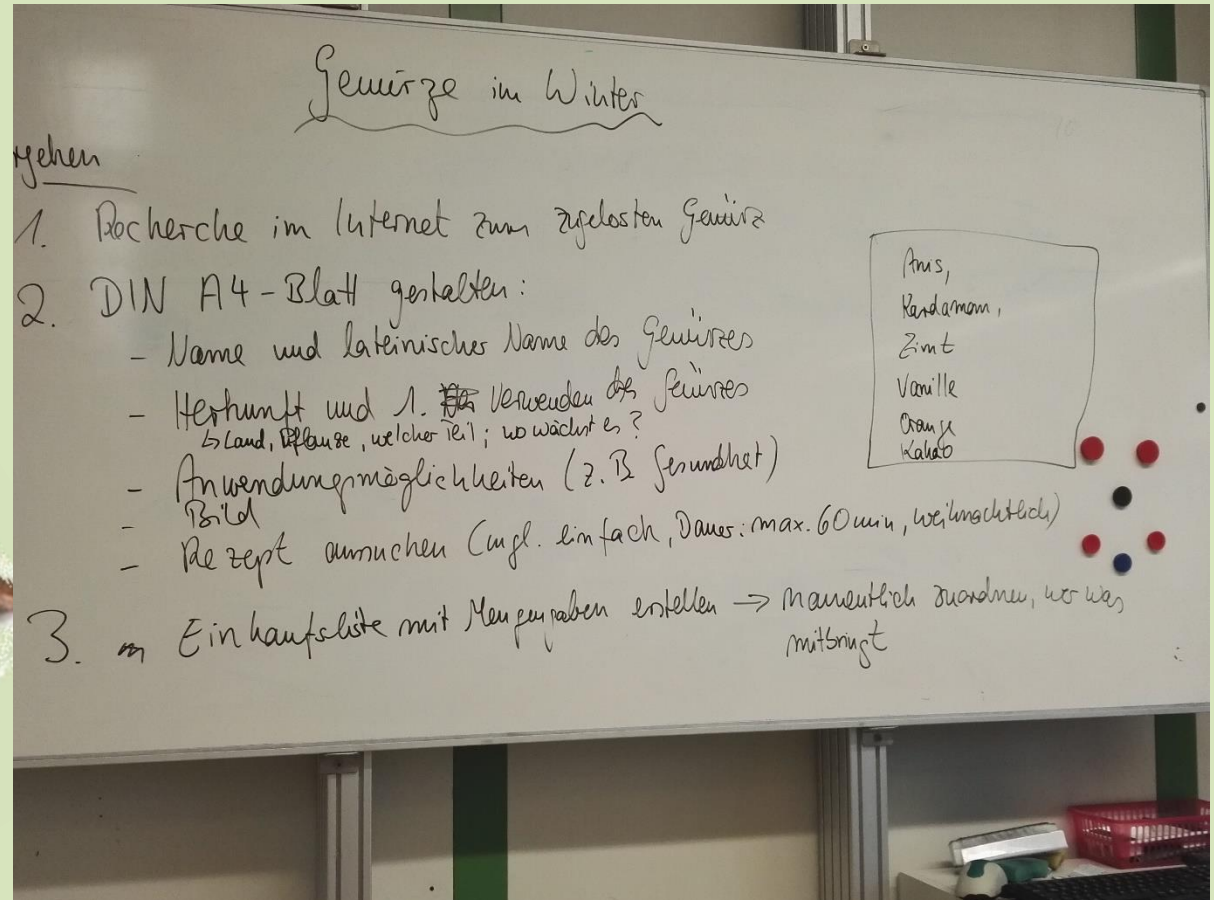 Gewürze im Winter
gehen
1. Recherche im Internet zum zugelosten Gewürz
2. DIN A4-Blatt gestalten:
- Name und lateinischer Name des Gewürzes
- Herkunft und 1. Verwenden des Gewürzes
↳ Land, Pflanze, welcher Teil; wo wächst es?
- Anwendungsmöglichkeiten (z.B Gesundheit)
- Bild
- Rezept aussuchen (mgl. einfach, Dauer: max. 60 min, weihnachtlich)
3. Einkaufsliste mit Mengengaben erstellen → namentlich zuordnen, wer was
mitbringt
Anis,
Kardamom,
Zimt
Vanille
Orange
Kakao